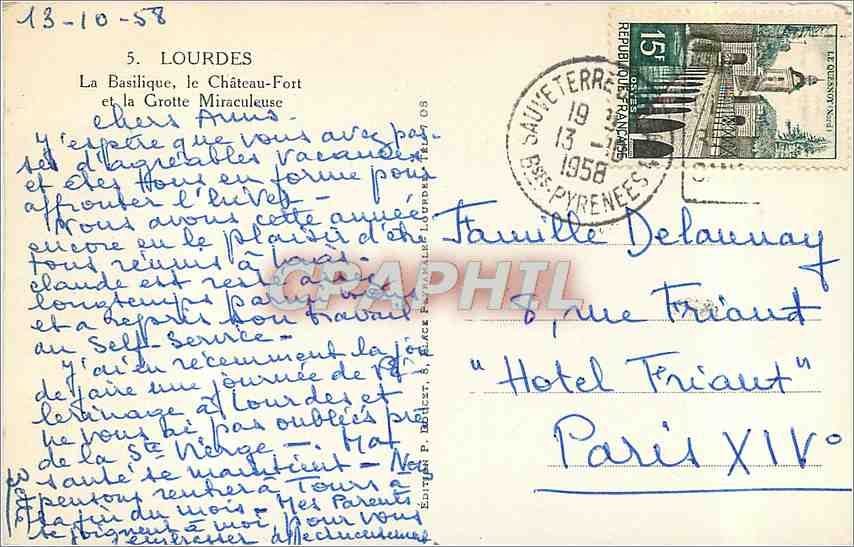 13-10-58
5. LOURDES
La Basilique, le Château-Fort
et la Grotte Miraculeuse
chers Amis.
J'espère que vous avez pas-
sés d'agréables vacances
et êtes tous en forme pour
affronter l'hiver -
Nous avons cette année
encore eu le plaisir d'être
tous réunis à
claude est resté
longtemps parmi nous
et a repris son travail
au Self-Service -
J'ai eu récemment la joie
de faire une journée de Pè-
lerinage à Lourdes et
ne vous ai pas oubliés près
de la Ste Vierge -. Ma
santé se maintient - Nous
pensons rentrer à Tours à
la fin du mois - Mes Parents
se joignent à moi pour vous
embrasser affectueusement
EDITION P. DOUCET, 8, PLACE PEYRAMALE, LOURDES - TÉL. 27 08
SAUVETERRE
19
13 -
1958
Bses PYRENEES
15F
POSTES
REPUBLIQUE FRANÇAISE
LE QUESNOY (Nord)
CPAPHIL
Famille Delaunay
8, rue Friant
"Hotel Friant"
Paris XIVo